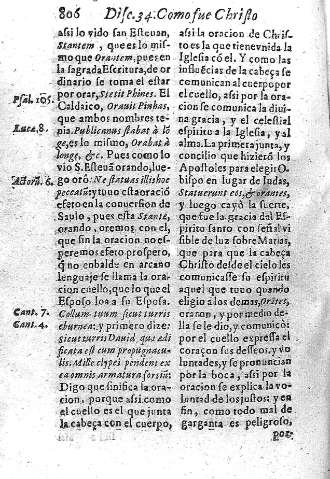 806 Disc. 34. Como fue Christo
assi lo vido san Esteuan,
Stantem, que es lo mismo
que Orantem, pues en
la sagrada Escritura, de ordinario
se toma el estar
por orar, Stetit Phines. El
Caldaico, Orauit Pinhas,
que ambos nombres tenia.
Publicanus stabat à lōge,
es lo mismo, Orabat à
longe, &c. Pues como lo
vio S. Esteuā orando, luego
orò: Ne statuas illis hoc
peccatū; y tuuo esta oraciō
efeto en la conuersion de
Saulo, pues ista Stante,
orando, oremos con el,
que sin la oracion no esperemos
efeto prospero,
q̄ no en balde en arcano
lenguaje se llama la oracion
cuello, que lo que el
Esposo loa a su Esposa.
Collum tuum sicut turris
eburnea: y primero dize:
sicut turris Dauid, quæ ædificata
est cum propugnaculis.
Mille clypei pendent ex
ea omnis armatura fortiū:
Digo que sinifica la oracion,
porque assi como
el cuello es el que junta
la cabeça con el cuerpo,
Psal. 105.
Luca. 8.
Actorū. 6.
Cant. 7.
Cant. 4.
assi la oracion de Christo
es la que tiene vnida la
Iglesia cō el. Y como las
influēcias de la cabeça se
comunican al cuerpo por
el cuello, assi por la oracion
se comunica la diuina
gracia, y el celestial
espiritu a la Iglesia, y al
alma. La primera junta, y
concilio que hizierō los
Apostoles para elegir Obispo
en lugar de Iudas,
Statuerunt eos, & orantes,
y luego cayò la suerte,
que fue la gracia del Espiritu
santo con señal visible
de luz sobre Matias,
que para que la cabeça
Christo desde el cielo les
comunicasse su espiritu
aquel que tuuo quando
eligio a los demas, orātes,
oraron, y por medio della
se le dio, y comunicò:
por el cuello expressa el
coraçon sus desseos, y voluntades,
y se pronuncian
por la boca, assi por la
oracion se explica la voluntad
de los justos: y en
fin, como todo mal de
garganta es peligroso,
por